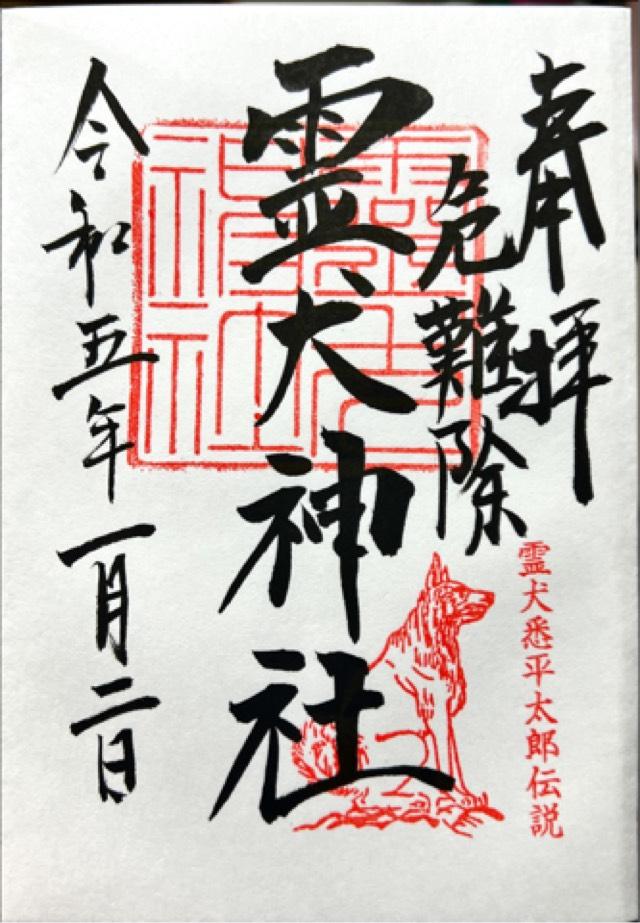 奉拝
危難除
霊犬神社
令和五年一月二日
霊犬悉平太郎伝説
霊犬神社